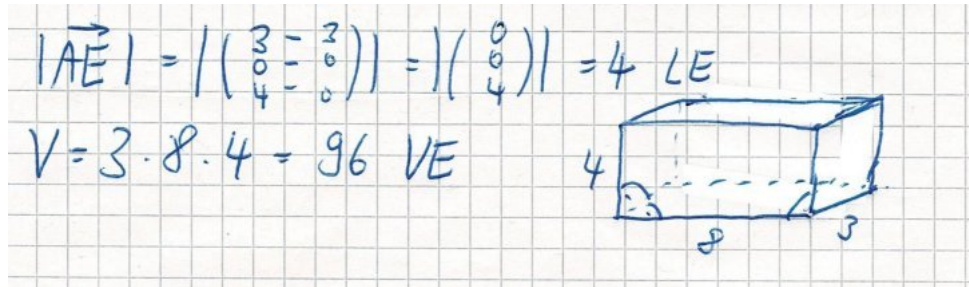 |AE| = |(3 - 3 0 - 0 4 - 0)| = |(0 0 4)| = 4 LE
V = 3 · 8 · 4 = 96 VE
4
8
3